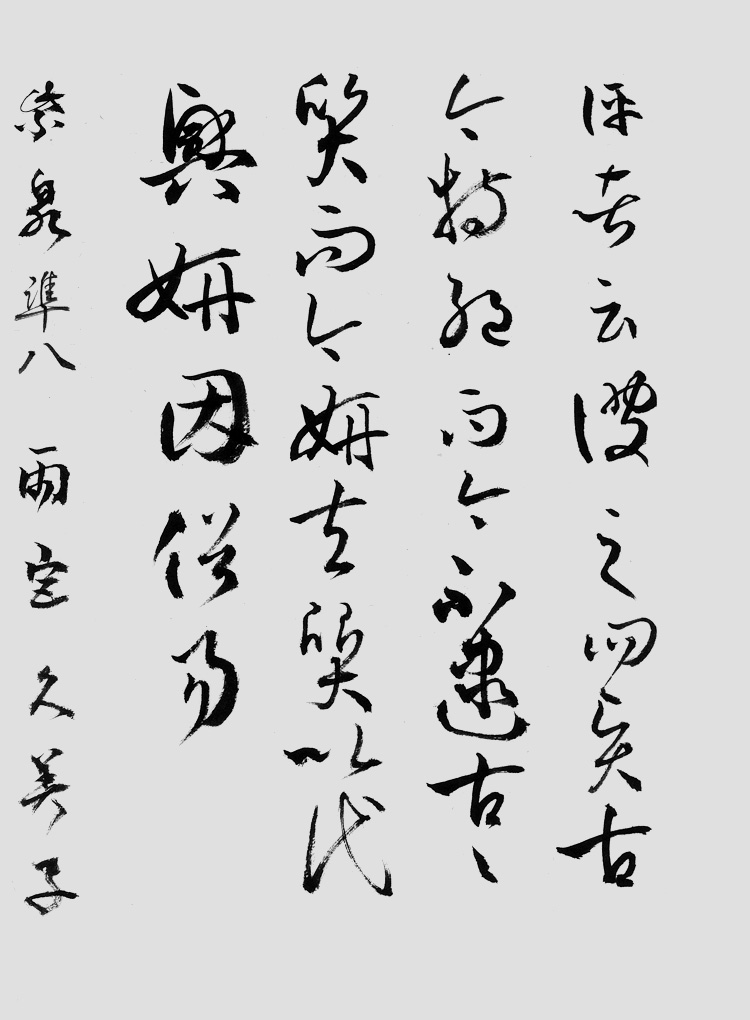 評者云彼之四賢古
今特絶而今不逮古〻
質而今妍夫質以代
興妍因俗易
紫泉準八 雨宮久美子